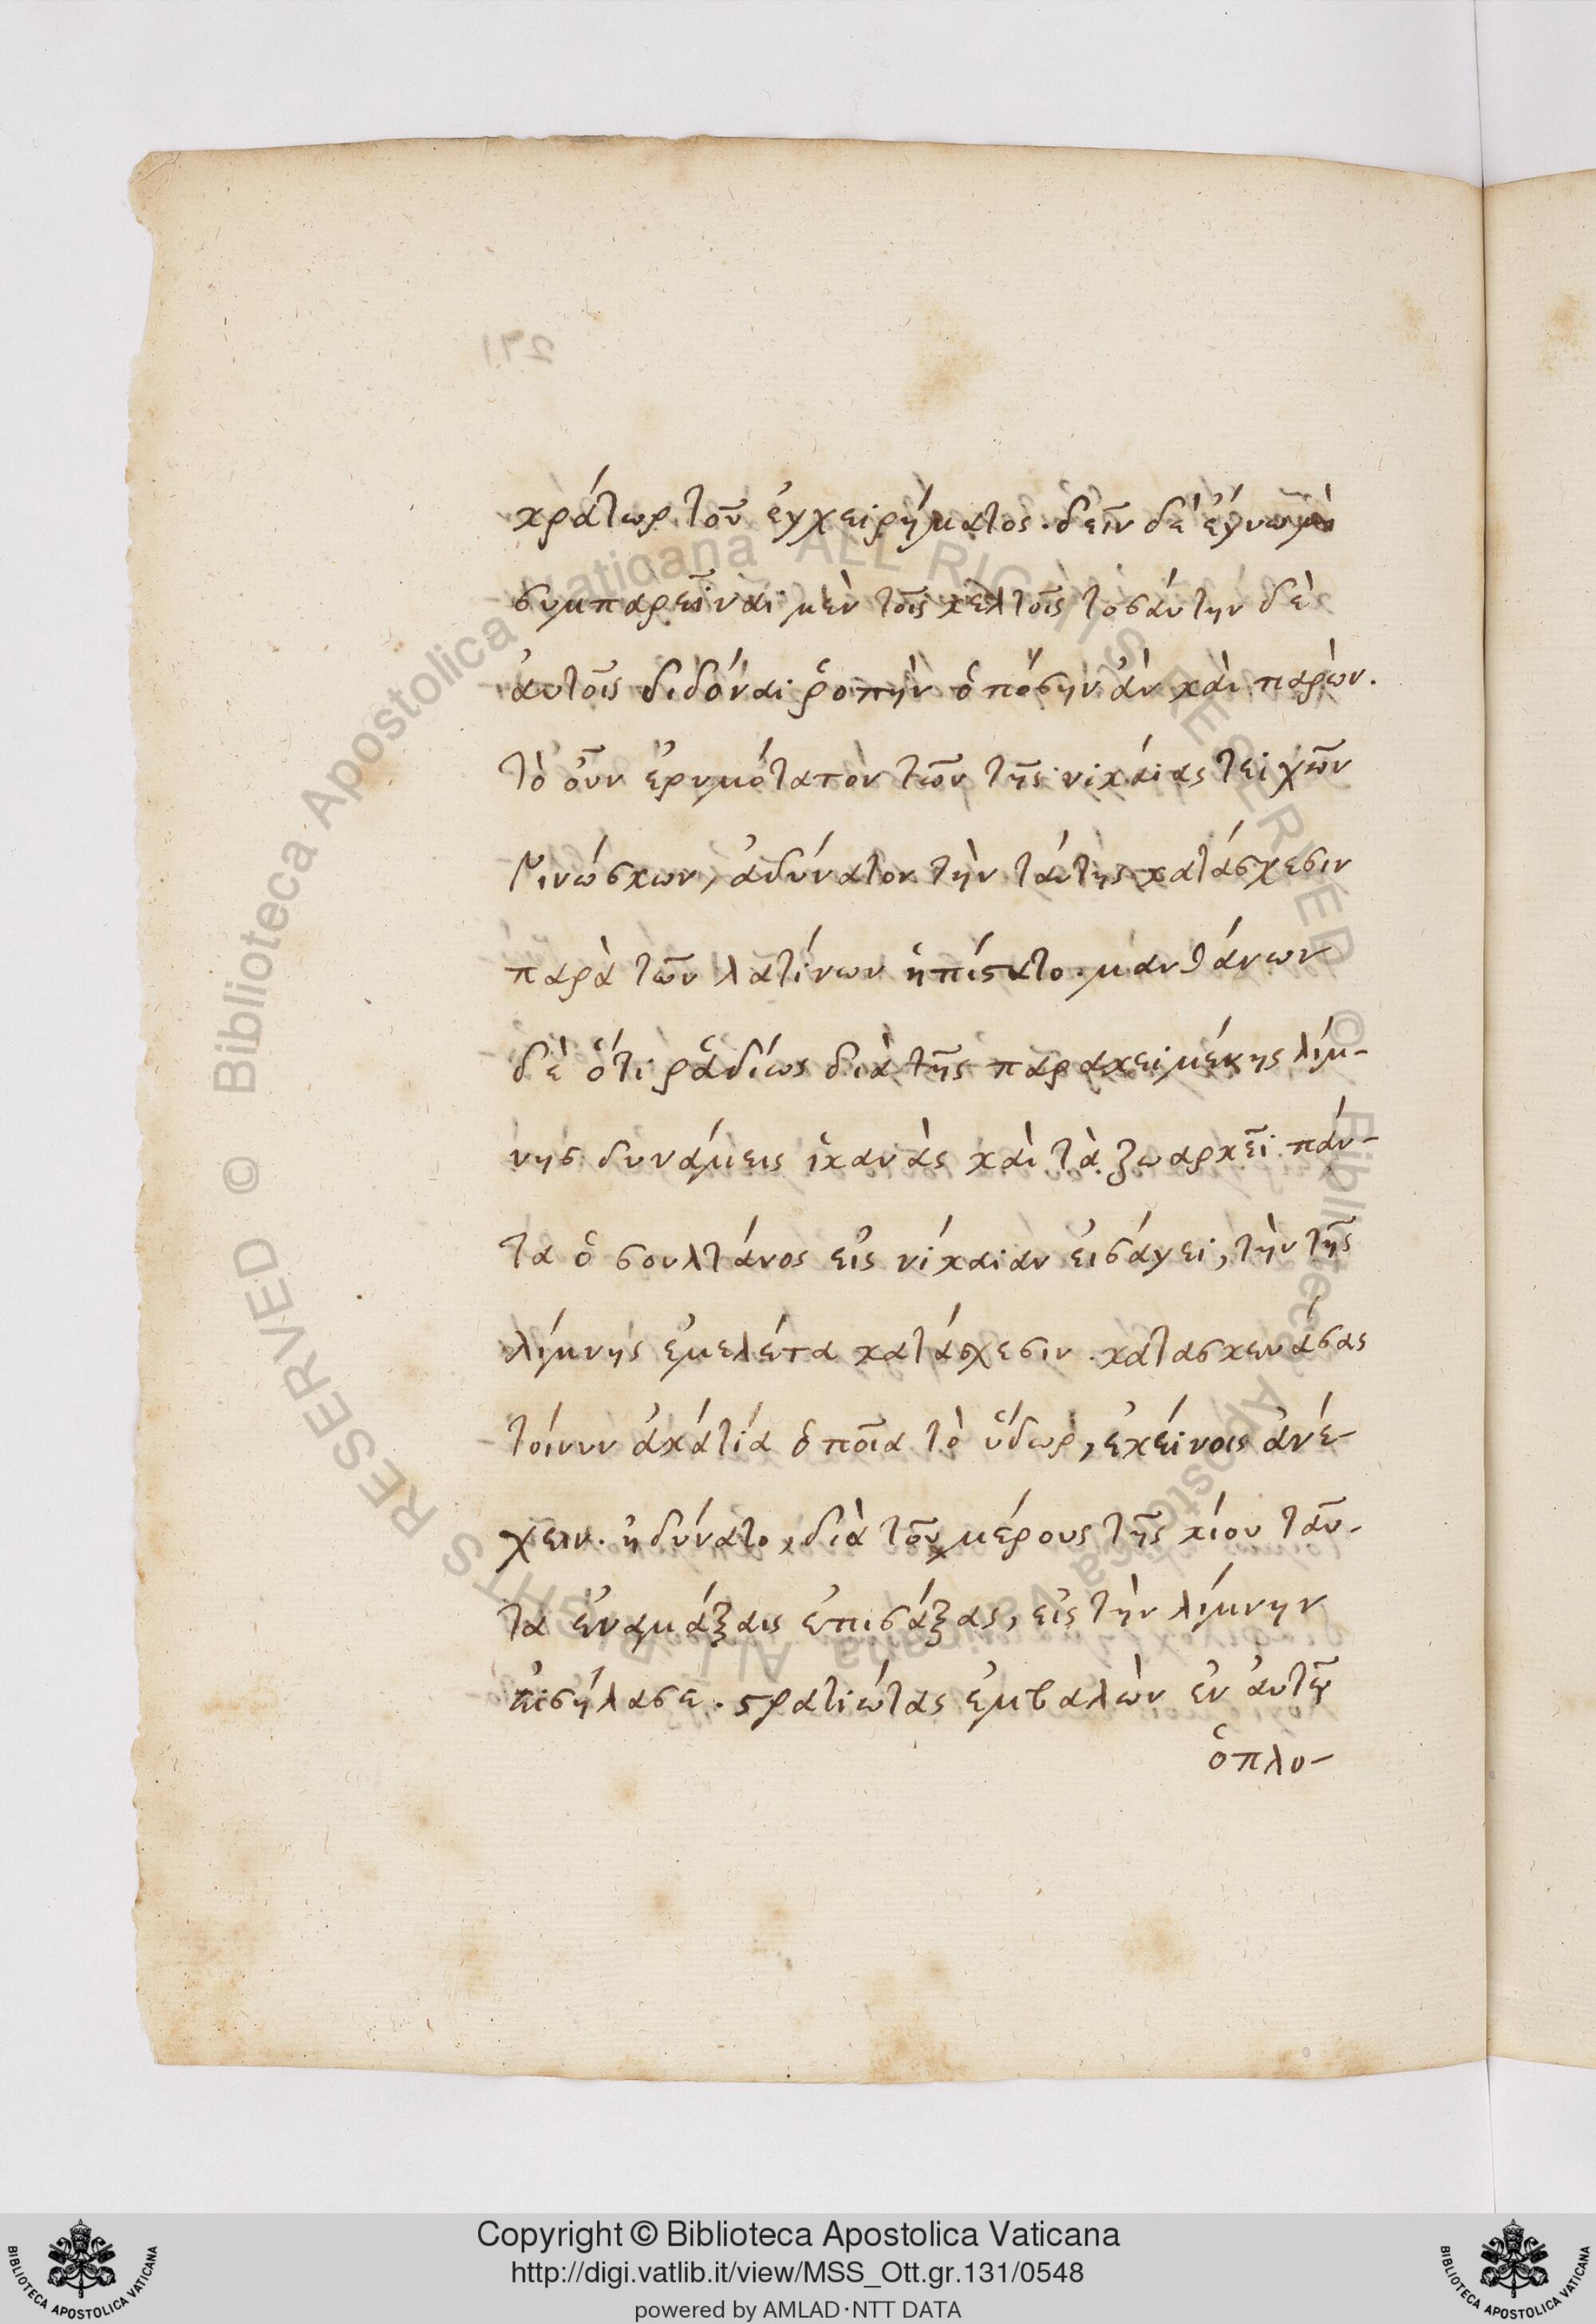 κράτωρ τοῦ ἐγχειρήματος. δεῖν δὲ ἔγνω μὴ
συμπαρεῖναι μὲν τοῖς κελτοῖς τοσάυτην δὲ
ἀυτοῖς διδόναι ῥοπὴν ὁπόσην ἀν κὰι παρὼν.
τὸ ὀῦν ἐρυμότατον τῶν τῆς νικάιας τειχῶν
Γινώσκων, ἀδύνατον τὴν τάυτης κατάσχεσιν
παρὰ τῶν λατίνων ἠπίστατο. μανθάνων
δὲ ὅτι ῥᾳδίως διὰ τῆς παρακειμένης λίμ-
νης δυνάμεις ἱκανὰς κὰι τὰ ζωαρκεῖ πάν-
τα ὁ σουλτάνος εἰς νίκαιαν εἰσάγει, τὴν τῆς
λίμνης ἐμελέτα κατάσχεσιν. κατασκευάσας
τοίνυν ἀκάτια ὁποῖα τὸ ὕδωρ, ἐκείνοις ἀνέ-
χειν. ἠδύνατο, διὰ τοῦ μέρους τῆς κίου τᾶυ-
τα ἐν αμάξαις ἐπισάξας, εἰς τὴν λίμνην
εἰσήλασε. στρατιώτας ἐμβαλὼν ἐν ἀυτοῖς
ὁπλο-
291
Copyright © Biblioteca Apostolica Vaticana
http://digi.vatlib.it/view/MSS_Ott.gr.131/0548
powered by AMLAD·NTT DATA
BIBLIOTECA APOSTOLICA VATICANA
BIBLIOTECA APOSTOLICA VATICANA
© Biblioteca Apostolica Vaticana ALL RIGHTS RESERVED
© Biblioteca Apostolica Vaticana ALL RIGHTS RESERVED